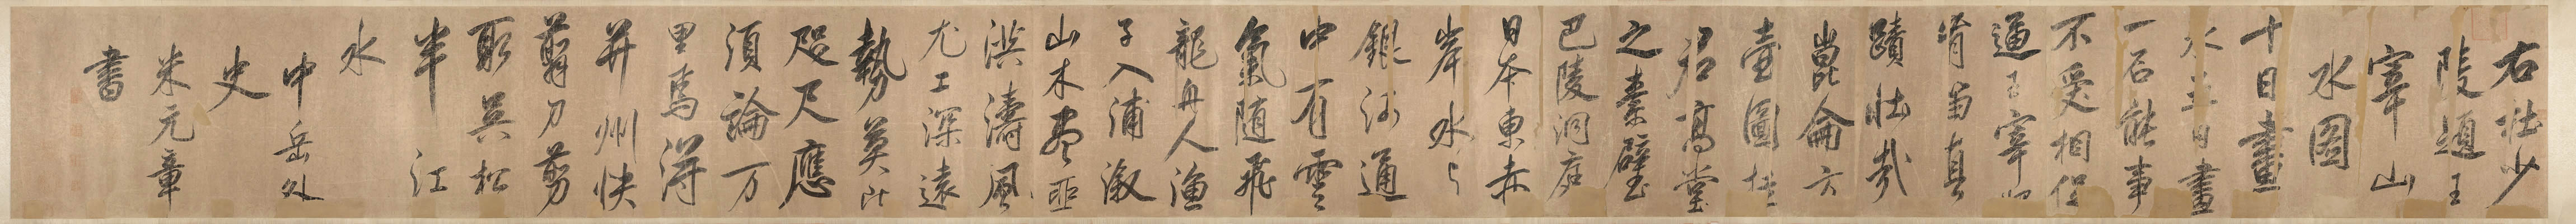 右杜少
陵題王
宰山
水圖
十日畫
水五日畫
一石能事
不受相促
逼王宰始
肯留真
蹟壯哉
崑崙方
壺圖挂
君高堂
之素壁
巴陵洞庭
日本東赤
岸水与
銀河通
中有雲
氣随飛
龍舟人漁
子入浦漵
山木盡亞
洪濤風
尤工深遠
勢莫比
咫尺應
須論万
里焉得
并州快
翦刀剪
取吳松
半江
水
中岳外
史
米元章
書